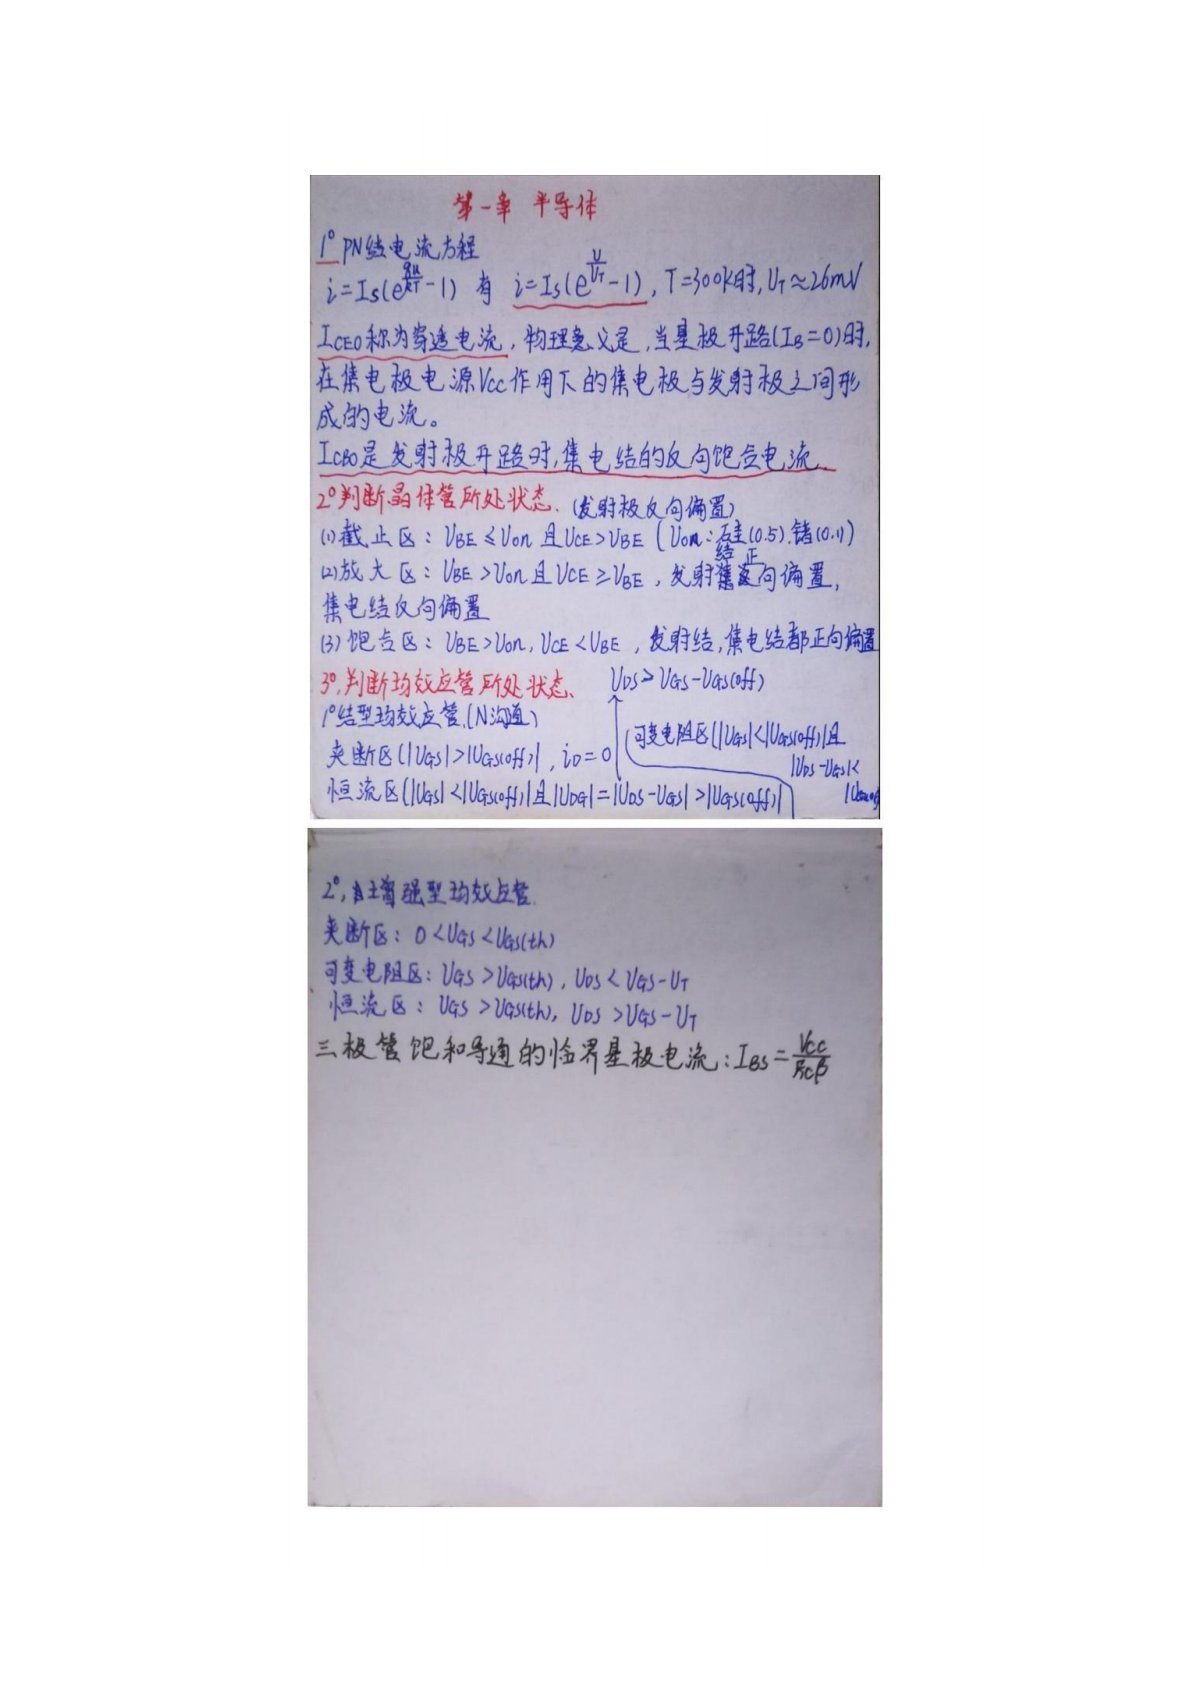 第一章 半导体
1° PN结电流方程
i=Is(e^{qu/kT}-1) 有 i=Is(e^{U/U_T}-1), T=300K时, U_T≈26mV
I_CEO称为穿透电流, 物理意义是, 当基极开路(I_B=0)时,
在集电极电源Vcc作用下的集电极与发射极之间形
成的电流。
I_CBO是发射极开路时, 集电结的反向饱和电流.
2°判断晶体管所处状态. (发射极反向偏置)
(1)截止区: U_BE≤Uon 且U_CE>U_BE (Uon: 硅(0.5).锗(0.1))
(2)放大区: U_BE>Uon且U_CE≥U_BE, 发射结正向偏置,
集电结反向偏置
(3)饱和区: U_BE>Uon, U_CE<U_BE, 发射结,集电结都正向偏置
3°,判断场效应管所处状态. U_DS>U_GS-U_GS(off)
1°结型场效应管.(N沟道)
可变电阻区(|U_GS|<|U_GS(off)|且
夹断区(|U_GS|>|U_GS(off)|, i_D=0
|U_DS-U_GS|<
恒流区(|U_GS|<|U_GS(off)|且|U_DG|=|U_DS-U_GS|>|U_GS(off)|
2°, 增强型场效应管.
夹断区: 0<U_GS<U_GS(th)
可变电阻区: U_GS>U_GS(th), U_DS<U_GS-U_T
恒流区: U_GS>U_GS(th), U_DS>U_GS-U_T
三极管饱和导通的临界基极电流: I_BS=Vcc/Rcβ